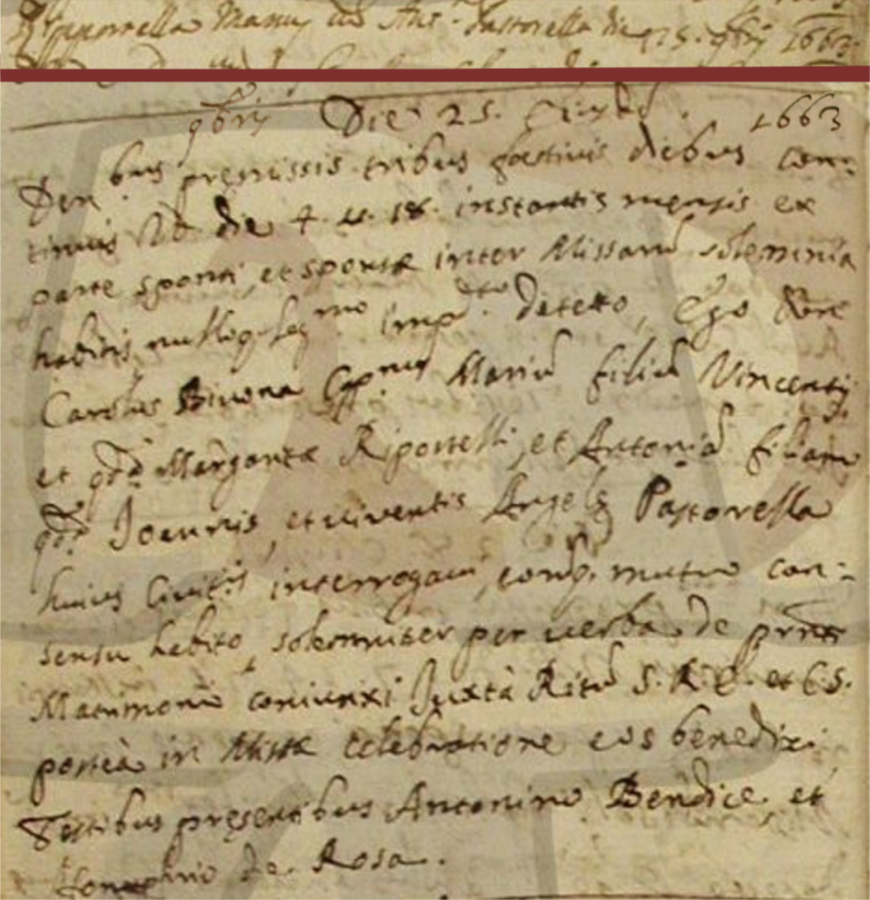 Riportella Marius cum Ant.ª Pastorella die 25. 9bris 1663.
9bris Die 25. 1663
Den bus premissis tribus festivis diebus con:
tinuis die 4. 11. 18. instantis mensis ex
parte sponsi, et sponsæ inter Missarum solemnia
habitis nulloq. leg.mo imp.to detecto, Ego
Carolus Bivona Capnus Marium filium Vincentij
et qd. Margaritæ Riportelli, et Antoniam filiam
qd. Joannis, et viventis Angelæ Pastorella
huius Civitis interrogavi, eorq. mutuo con-:
sensu habito, solemniter per verba de prnti
Matrimonio coniunxi Juxtà Ritum S. R. E. et eos
posteà in Missæ celebratione eos benedixi
Testibus presentibus Antonino Bendice, et
de Rosa.